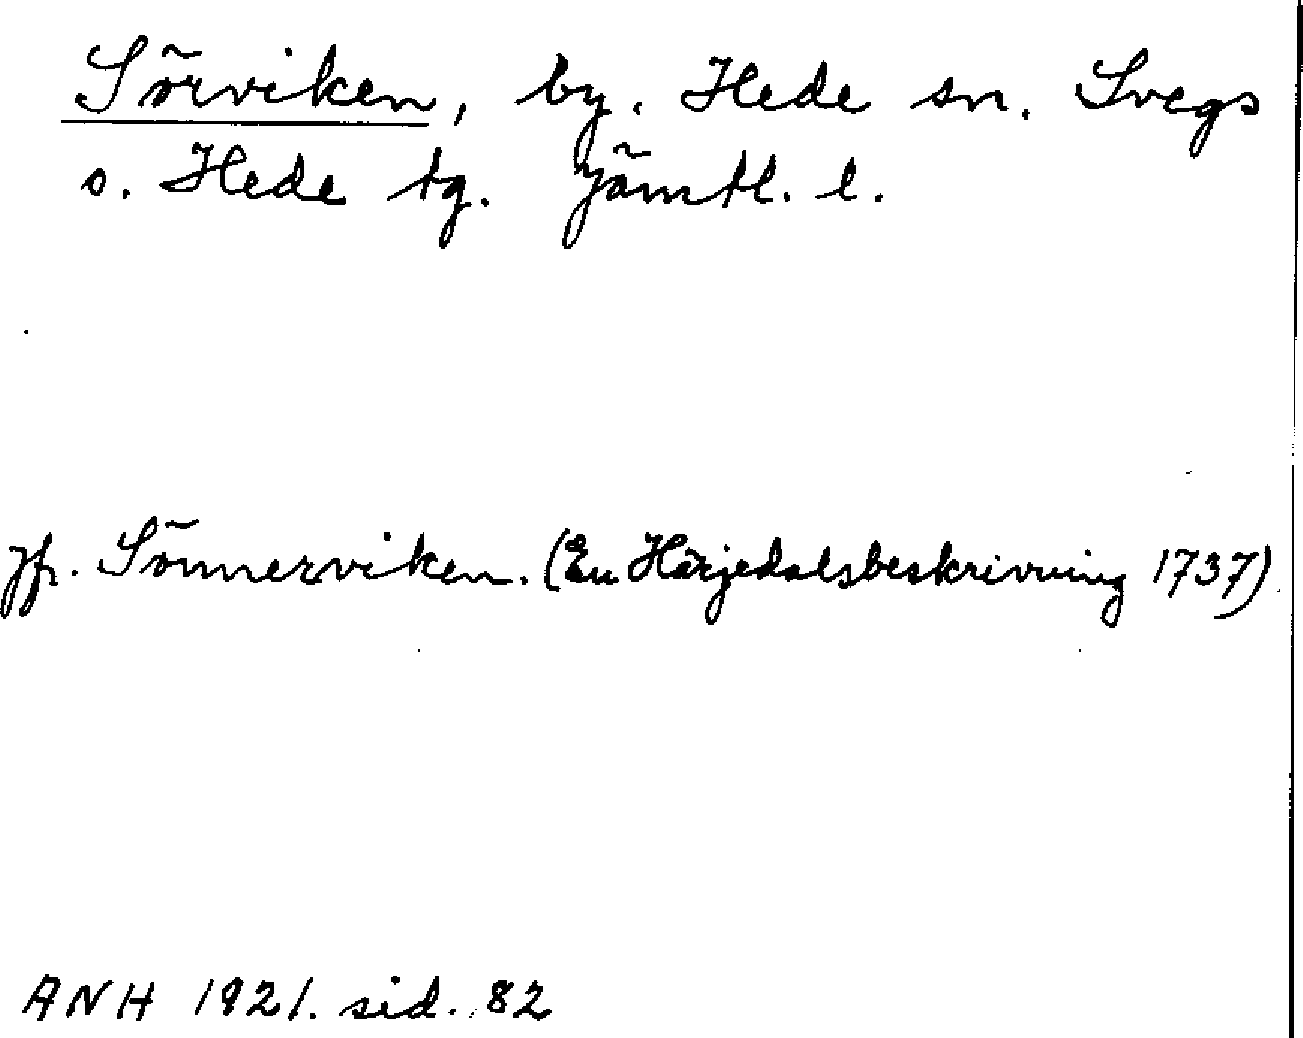 Sörviken, by. Hede sn. Svegs
o. Hede tg. Jämtl. l.
Jfr. Sönnerviken. (En Härjedalsbeskrivning 1737)
ANH 1921. sid. 82